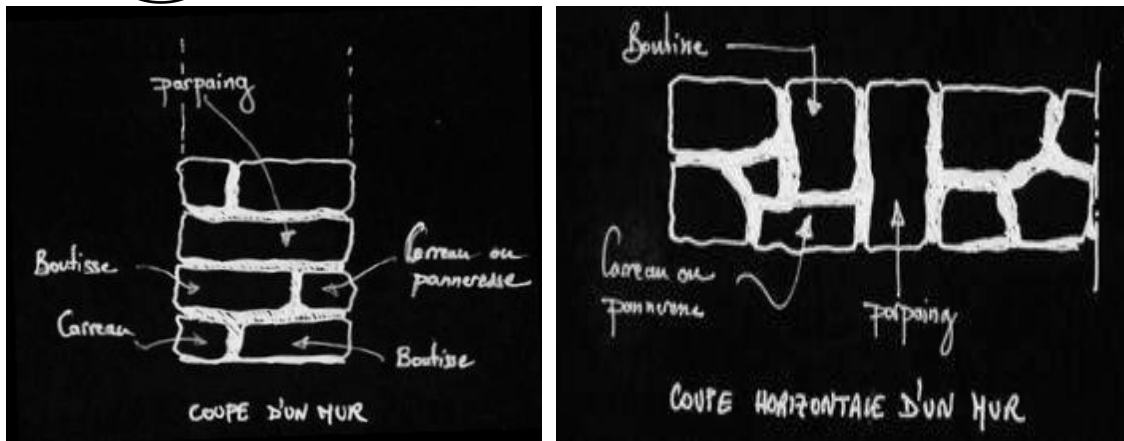 parpaing
Boutisse
Carreau ou
panneresse
Carreau
Boutisse
COUPE D'UN MUR
Boutisse
Carreau ou
panneresse
parpaing
COUPE HORIZONTALE D'UN MUR